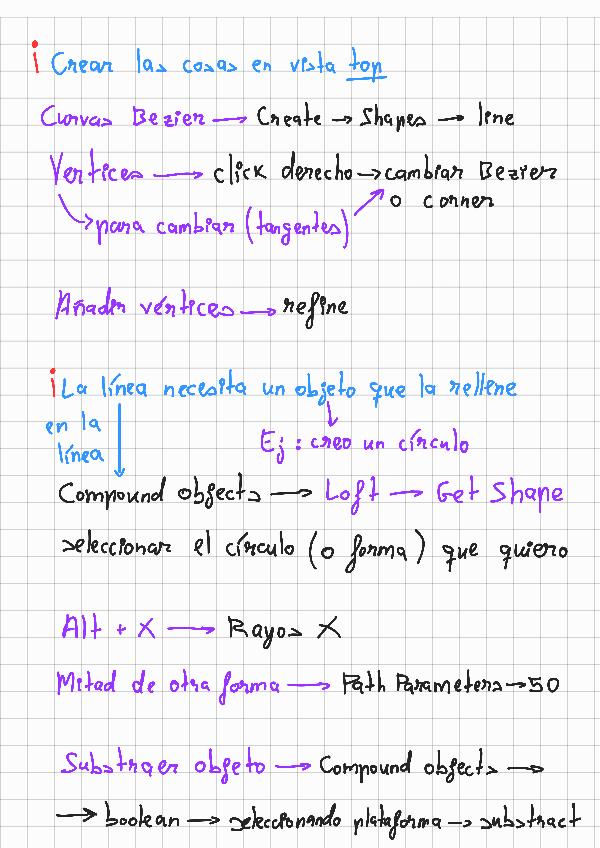 ¡ Crear las cosas en vista top
Curvas Bezier → Create → Shapes → line
Vertices → click derecho → cambiar Bezier
o corner
para cambiar (tangentes)
Añadir vértices → refine
¡ La línea necesita un objeto que la rellene
en la
línea
Ej : creo un círculo
Compound objects → Loft → Get Shape
seleccionar el círculo (o forma) que quiero
Alt + X → Rayos X
Mitad de otra forma → Path Parameters → 50
Substraer objeto → Compound objects →
→ boolean → seleccionando plataforma → substract